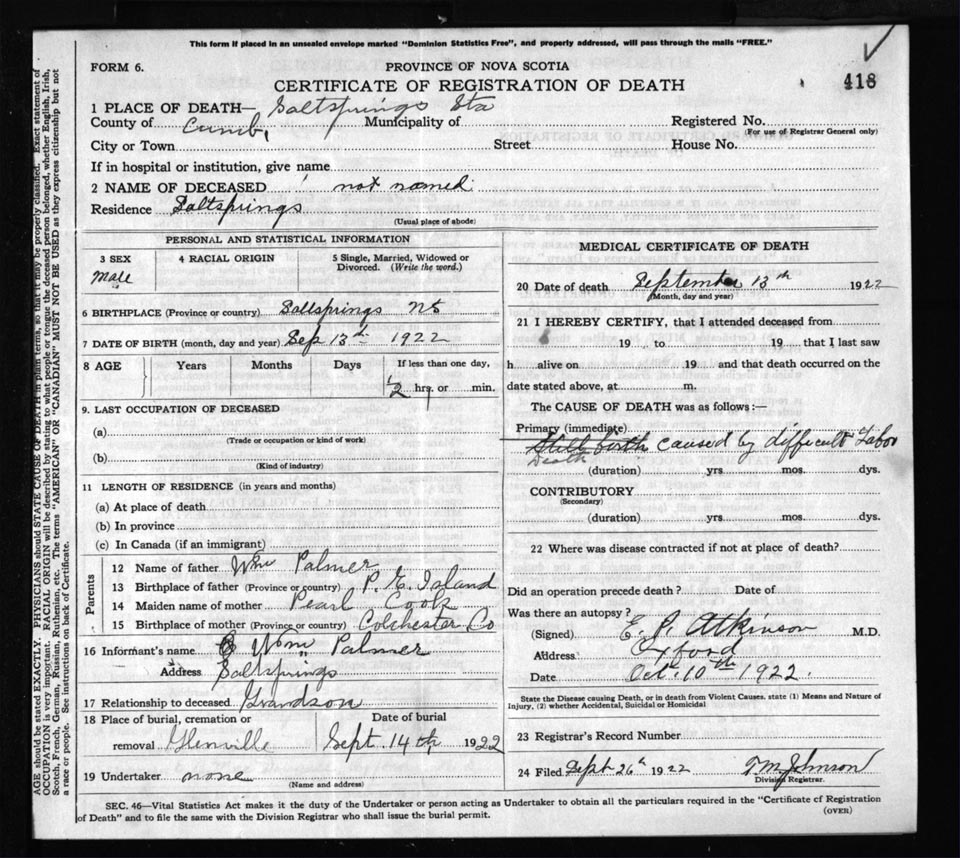 This form if placed in an unsealed envelope marked "Dominion Statistics Free", and properly addressed, will pass through the mails "FREE."
FORM 6.
PROVINCE OF NOVA SCOTIA
CERTIFICATE OF REGISTRATION OF DEATH
418
1 PLACE OF DEATH— Saltsprings Sta
County of Cumb. Municipality of Registered No.
(For use of Registrar General only)
City or Town Street House No.
If in hospital or institution, give name
2 NAME OF DECEASED not named
Residence Saltsprings
(Usual place of abode)
PERSONAL AND STATISTICAL INFORMATION
3 SEX 4 RACIAL ORIGIN 5 Single, Married, Widowed or Divorced. (Write the word.)
Male
6 BIRTHPLACE (Province or country) Saltsprings NS
7 DATE OF BIRTH (month, day and year) Sep 13th 1922
8 AGE Years Months Days If less than one day,
1/2 hrs. or min.
9. LAST OCCUPATION OF DECEASED
(a)
(Trade or occupation or kind of work)
(b)
(Kind of industry)
11 LENGTH OF RESIDENCE (in years and months)
(a) At place of death
(b) In province
(c) In Canada (if an immigrant)
Parents
12 Name of father Wm Palmer
13 Birthplace of father (Province or country) P. E. Island
14 Maiden name of mother Pearl Cook
15 Birthplace of mother (Province or country) Colchester Co
16 Informant's name Wm Palmer
Address Saltsprings
17 Relationship to deceased Grandson
18 Place of burial, cremation or removal Glenville
Date of burial Sept. 14th 1922
19 Undertaker none
(Name and address)
MEDICAL CERTIFICATE OF DEATH
20 Date of death September 13th 1922
(Month, day and year)
21 I HEREBY CERTIFY, that I attended deceased from
19 to 19 that I last saw
h alive on 19 and that death occurred on the
date stated above, at m.
The CAUSE OF DEATH was as follows:—
Primary (immediate)
Still birth caused by difficult Labor
Death
(duration) yrs. mos. dys.
CONTRIBUTORY
(Secondary)
(duration) yrs. mos. dys.
22 Where was disease contracted if not at place of death?
Did an operation precede death? Date of
Was there an autopsy?
(Signed) E. P. Atkinson M.D.
Address Oxford
Date Oct. 10th 1922.
State the Disease causing Death, or in death from Violent Causes, state (1) Means and Nature of
Injury, (2) whether Accidental, Suicidal or Homicidal
23 Registrar's Record Number
24 Filed Sept 26th 1922 T. M. Johnson
Division Registrar.
SEC. 46—Vital Statistics Act makes it the duty of the Undertaker or person acting as Undertaker to obtain all the particulars required in the "Certificate of Registration
of Death" and to file the same with the Division Registrar who shall issue the burial permit.
(OVER)
AGE should be stated EXACTLY. PHYSICIANS should STATE CAUSE OF DEATH in plain terms, so that it may be properly classified. Exact statement of
OCCUPATION is very important. RACIAL ORIGIN will be described by stating to what people or tongue the deceased person belonged, whether English, Irish,
Scotch, French, German, Russian, Ruthenian, etc. The terms "AMERICAN" OR "CANADIAN" MUST NOT BE USED as they express citizenship but not
a race or people. See instructions on back of Certificate.